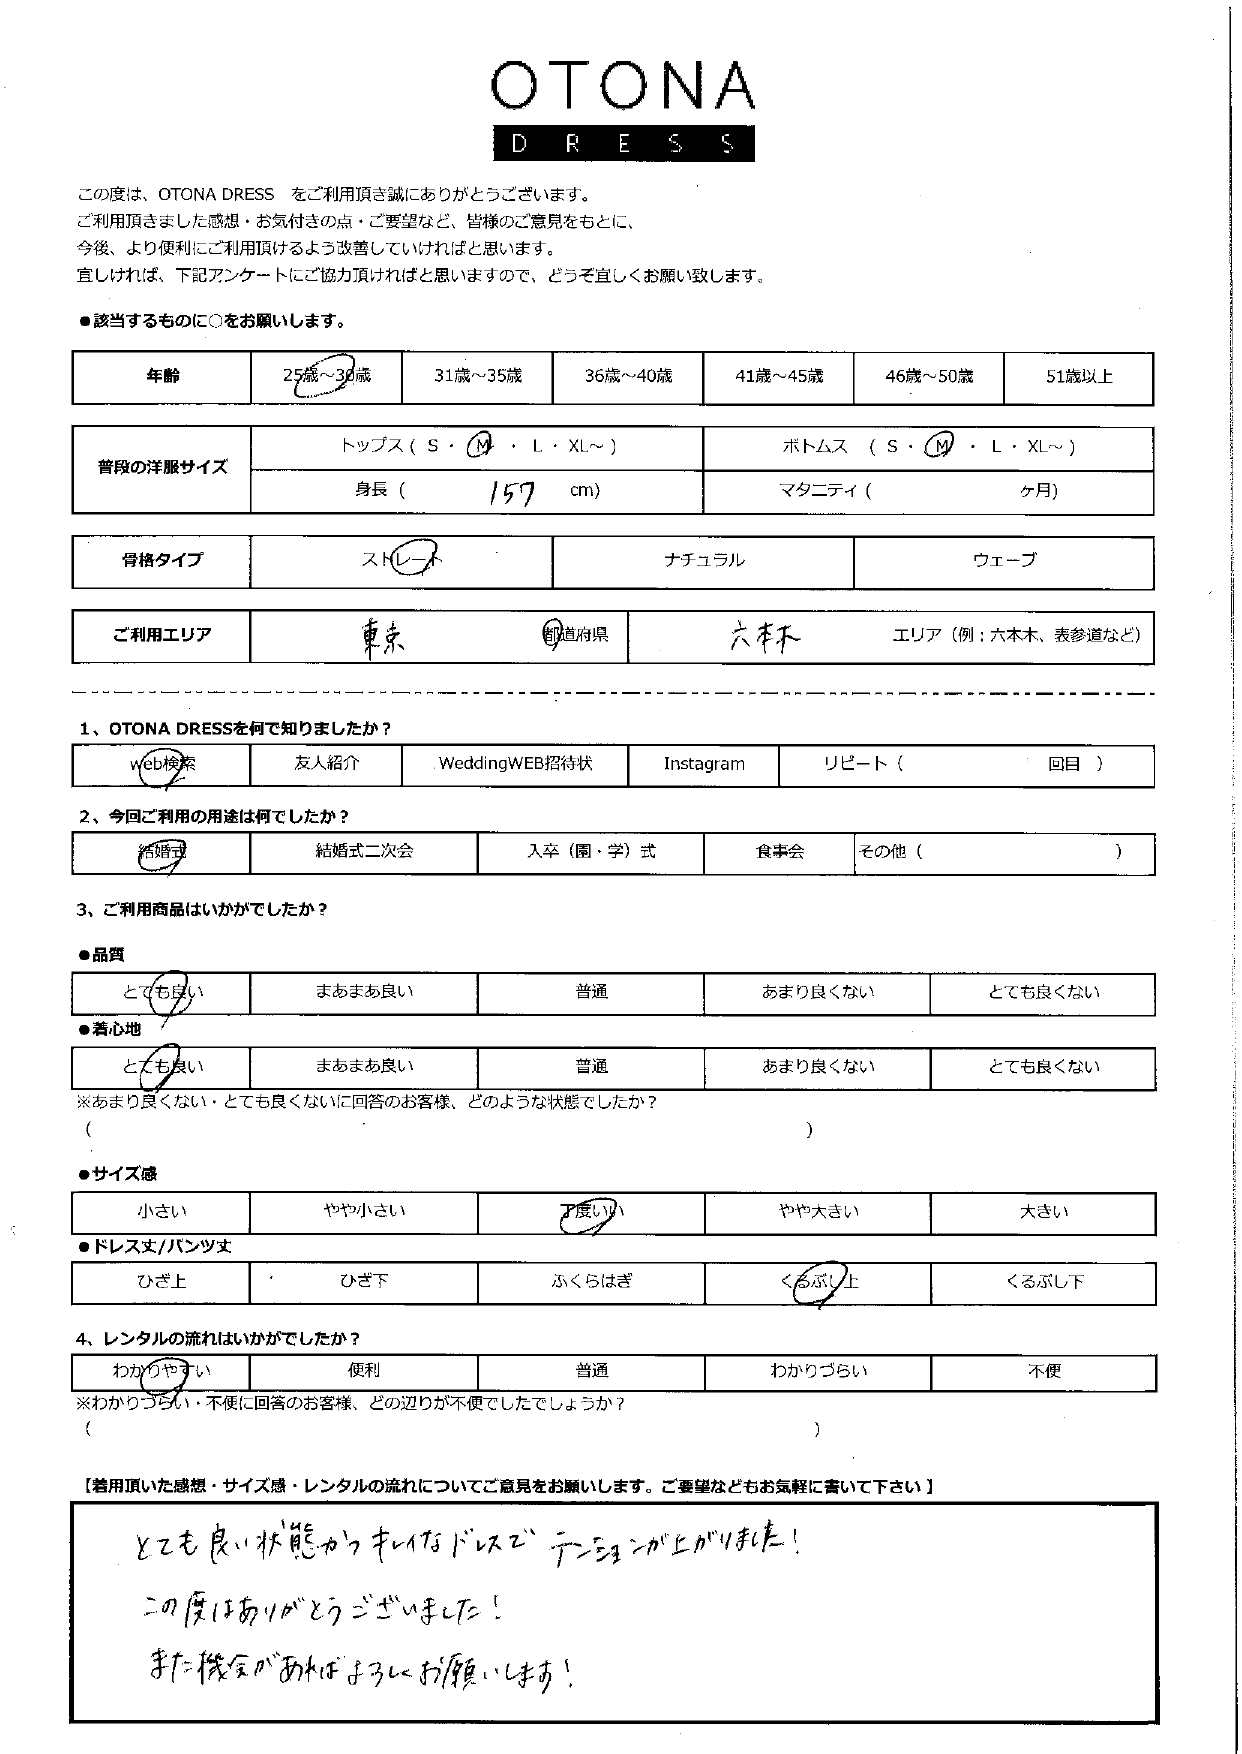 OTONA
DRESS
この度は、OTONA DRESS　をご利用頂き誠にありがとうございます。
ご利用頂きました感想・お気付きの点・ご要望など、皆様のご意見をもとに、
今後、より便利にご利用頂けるよう改善していければと思います。
宜しければ、下記アンケートにご協力頂ければと思いますので、どうぞ宜しくお願い致します。
●該当するものに○をお願いします。
年齢 25歳～30歳 31歳～35歳 36歳～40歳 41歳～45歳 46歳～50歳 51歳以上
普段の洋服サイズ トップス ( S ・ M ・ L ・ XL～ ) ボトムス ( S ・ M ・ L ・ XL～ )
身長 ( 157 cm) マタニティ ( ヶ月)
骨格タイプ ストレート ナチュラル ウェーブ
ご利用エリア 東京 都道府県 六本木 エリア（例；六本木、表参道など）
1、OTONA DRESSを何で知りましたか？
web検索 友人紹介 WeddingWEB招待状 Instagram リピート（ 回目 ）
2、今回ご利用の用途は何でしたか？
結婚式 結婚式二次会 入卒（園・学）式 食事会 その他（ ）
3、ご利用商品はいかがでしたか？
●品質
とても良い まあまあ良い 普通 あまり良くない とても良くない
●着心地
とても良い まあまあ良い 普通 あまり良くない とても良くない
※あまり良くない・とても良くないに回答のお客様、どのような状態でしたか？
（ ）
●サイズ感
小さい やや小さい 丁度いい やや大きい 大きい
●ドレス丈/パンツ丈
ひざ上 ひざ下 ふくらはぎ くるぶし上 くるぶし下
4、レンタルの流れはいかがでしたか？
わかりやすい 便利 普通 わかりづらい 不便
※わかりづらい・不便に回答のお客様、どの辺りが不便でしたでしょうか？
（ ）
【着用頂いた感想・サイズ感・レンタルの流れについてご意見をお願いします。ご要望などもお気軽に書いて下さい】
とても良い状態かつキレイなドレスでテンションが上がりました！
この度はありがとうございました！
また機会があればよろしくお願いします！